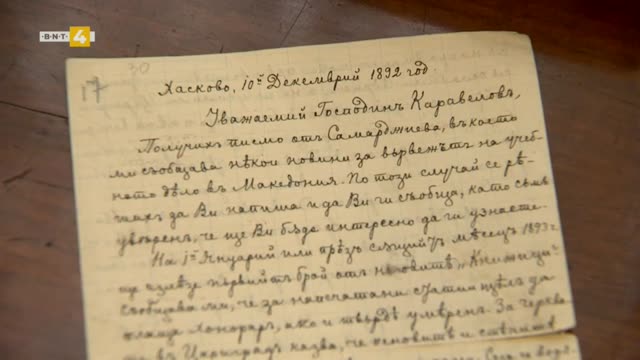 BNT 4
30
17
Хасково, 10й Декемврий 1892 год
Уважаемий Господинъ Каравеловъ,
Получихъ писмо отъ Самарджиева, въ което
ми съобщава нѣкои новини за вървежътъ на учеб-
ното дѣло въ Македония. По този случай се рѣ-
шихъ за Ви напиша и да Ви ги съобща, като съмъ
увѣренъ, че ще Ви бѫде интересно да ги узнаете.
На 1й Януарий или прѣзъ сѫщий мѣсецъ 1893 г.
ще излѣзе първийтъ брой отъ неговитѣ „Книжици"
съобщава ми, че за напечатани статии щѣлъ да
плаща хонораръ, ако и твърдѣ умѣренъ. За
та въ Цариградъ казва, че